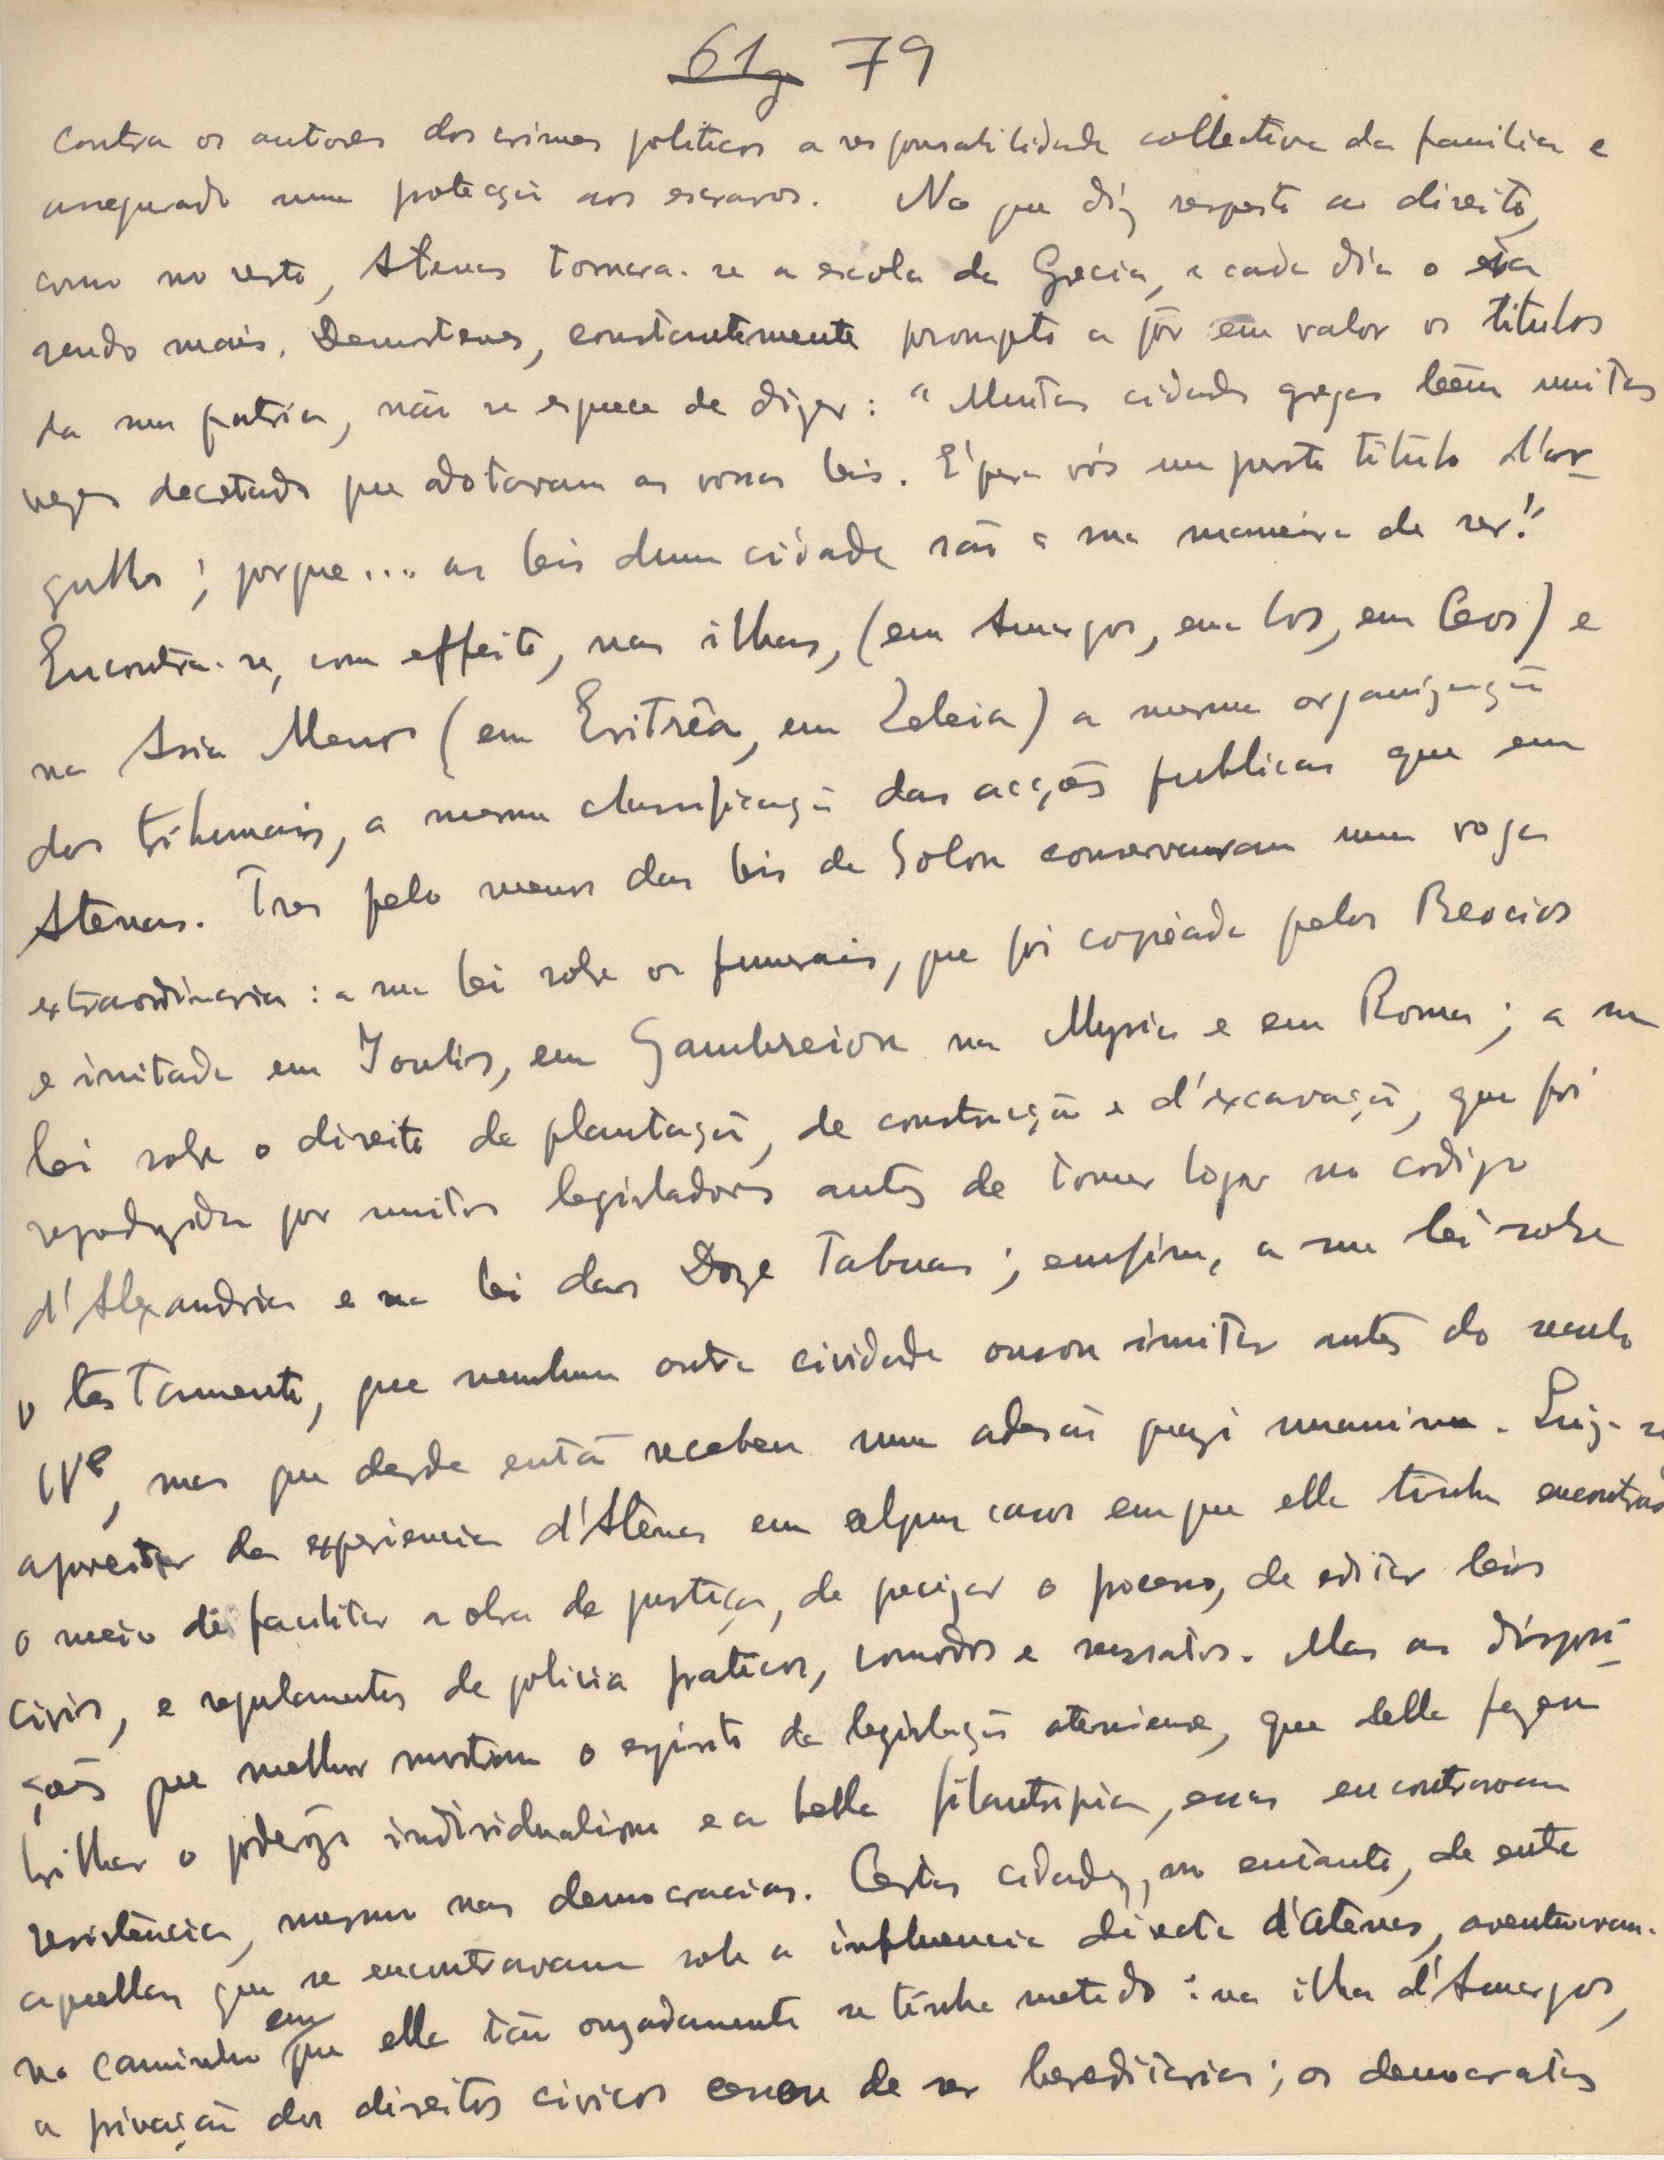 61g 79
contra os autores dos crimes politicos a responsabilidade collectiva da familia e
assegurado uma protecção aos escravos. No que diz respeito ao direito,
como no resto, Atenas tornara-se a escola da Grecia, e cada dia o era
sendo mais. Demostenes, constantemente prompto a pôr em valor os titulos
da sua patria, não se esquece de dizer: "Muitas cidades gregas teem muitas
vezes decretado que adotavam as vossas leis. E' para vós um justo titulo d'or-
gulho; porque... as leis duma cidade são a sua maneira de ser!"
Encontra-se, com effeito, nas ilhas, (em Amorgos, em Ios, em Ceos) e
na Asia Menor (em Eritrêa, em Zeleia) a mesma organização
dos tribunais, a mesma classificação das acções publicas que em
Atenas. Tres pelo menos das leis de Solon conservaram uma voga
extraordinaria: a sua lei sobre os funerais, que foi copiada pelos Beocios
e imitada em Ioulis, em Gambreion na Mysia e em Roma; a sua
lei sobre o direito de plantação, de construcção e d'excavação, que foi
reproduzida por muitos legisladores antes de tomar logar no codigo
d'Alexandria e na lei das Doze Tabuas; emfim, a sua lei sobre
o testamento, que nenhuma outra cividade ousou imitar antes do seculo
IVº, mas que desde então recebeu uma adesão quazi unanime. Quiz-se
aproveitar da experiencia d'Atenas em alguns casos em que ella tinha encontrado
o meio de facilitar a obra de justiça, de precizar o processo, de editar leis
civis, e regulamentos de policia praticos, comodos e sensatos. Mas as disposi-
ções que melhor mostram o espirito da legislação ateniense, que nella fazem
brilhar o poderozo individualismo e a bella filantropia, essas encontravam
resistencia, mesmo nas democracias. Certas cidades, no entanto, de entre
aquellas que se encontravam sob a influencia directa d'Atenas, aventuraram-
no caminho em que ella tão ouzadamente se tinha metido: na ilha d'Amorgos,
a privação dos direitos civicos cessou de ser hereditaria; os democratas